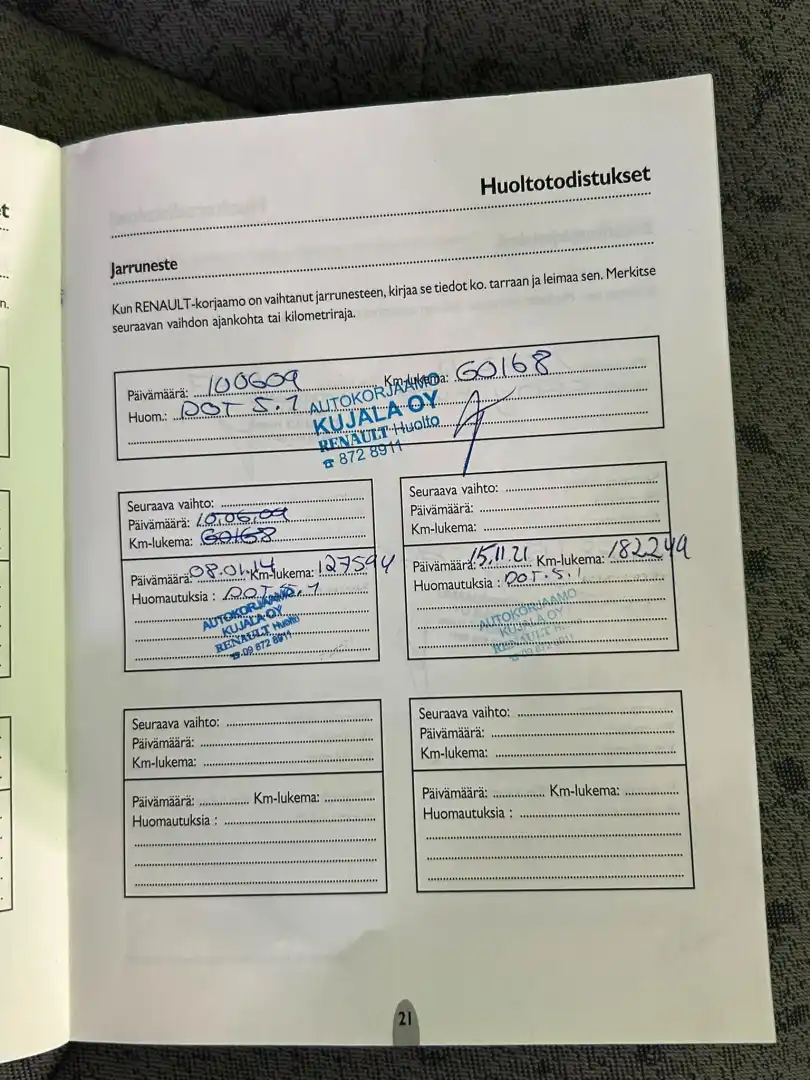 t
n.
Huoltotodistukset
Jarruneste
Kun RENAULT-korjaamo on vaihtanut jarrunesteen, kirjaa se tiedot ko. tarraan ja leimaa sen. Merkitse
seuraavan vaihdon ajankohta tai kilometriraja.
Päivämäärä: 100609 Km-lukema: 60168
Huom.: DOT 5.1
AUTOKORJAAMO
KUJALA OY
RENAULT Huolto
☎ 872 8911
Seuraava vaihto:
Päivämäärä: 10.06.09
Km-lukema: 60168
Päivämäärä: 08.01.14 Km-lukema: 127594
Huomautuksia : DOT 5.1
AUTOKORJAAMO
KUJALA OY
RENAULT Huolto
☎ 09 872 8911
Seuraava vaihto:
Päivämäärä:
Km-lukema:
Päivämäärä: 15.11.21 Km-lukema: 182249
Huomautuksia : DOT.5.1
AUTOKORJAAMO
KUJALA OY
RENAULT
Seuraava vaihto:
Päivämäärä:
Km-lukema:
Päivämäärä: Km-lukema:
Huomautuksia :
Seuraava vaihto:
Päivämäärä:
Km-lukema:
Päivämäärä: Km-lukema:
Huomautuksia :
21